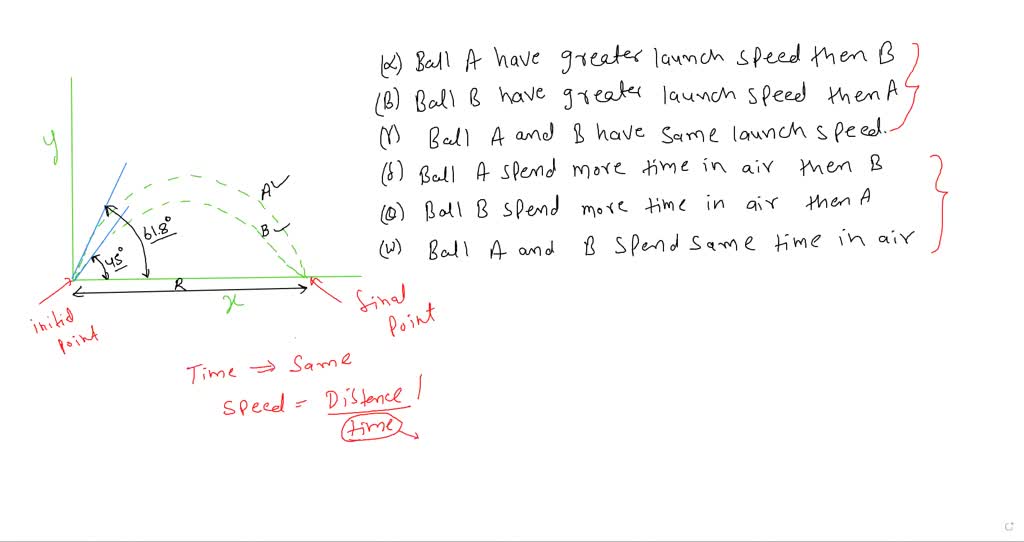 (α) Ball A have greater launch speed then B
(B) Ball B have greater launch speed then A
(r) Ball A and B have same launch speed.
(δ) Ball A spend more time in air then B
(Q) Ball B spend more time in air then A
(w) Ball A and B spend same time in air
y
A
B
61.8°
45°
R
x
initial point
final point
Time ⇒ Same
Speed = Distence
time